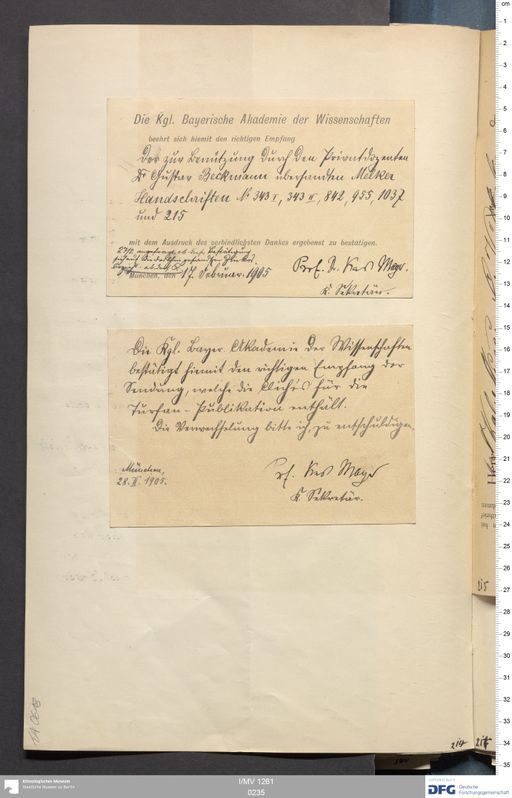 Die Kgl. Bayerische Akademie der Wissenschaften
beehrt sich hiemit den richtigen Empfang
der zur Benützung durch den Privatdozenten
Dr Gustav Beckmann übersandten Melker
Handschriften No 343 I, 343 II, 842, 955, 1037
und 215
mit dem Ausdruck des verbindlichsten Dankes ergebenst zu bestätigen.
München, den 17. Februar 1905
Prof. Dr. Karl Mayr.
K. Sekretär.
Die Kgl. Bayer. Akademie der Wissenschaften
bestätigt hiemit den richtigen Empfang der
Sendung, welche die Clichés für die
Turfan-Publikation enthält.
Die Verwechselung bitte ich zu entschuldigen.
München,
28. II. 1905.
Prof. Karl Mayr
K. Sekretär.
215
214
Ethnologisches Museum
Staatliche Museen zu Berlin
I/MV 1261
0235
DFG Deutsche
Forschungsgemeinschaft